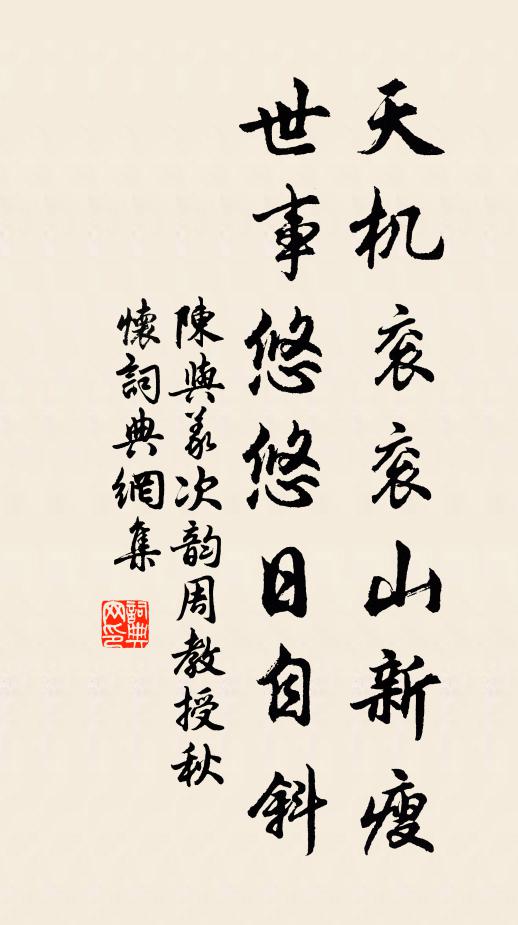 天机衮衮山新瘦
世事悠悠日自斜
陳與義次韵周教授秋
懷詞典網集
詞典网印